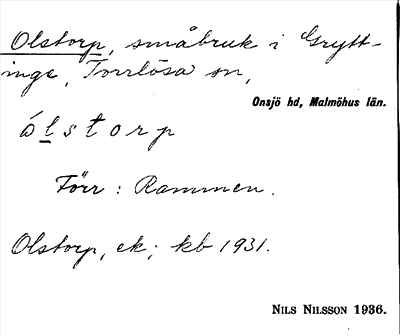 Olstorp, småbruk i Grytt-
inge, Torrlösa sn,
Onsjö hd, Malmöhus län.
ólstorp
Förr: Rammen.
Olstorp, ek; kb 1931.
NILS NILSSON 1936.